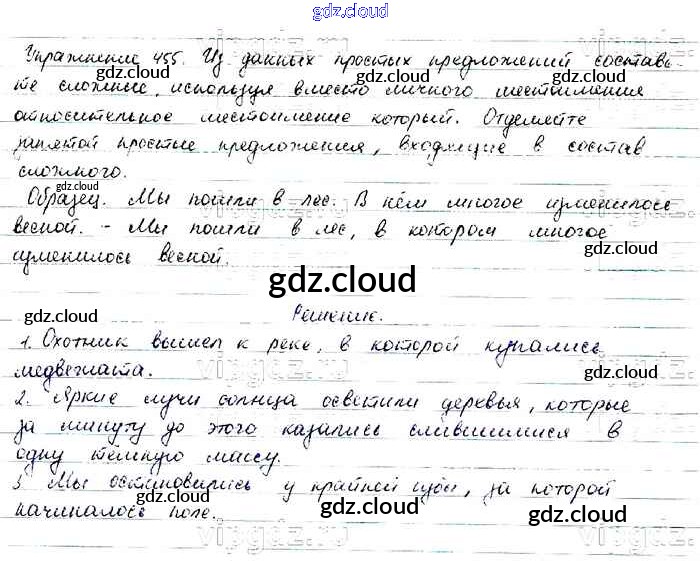 gdz.cloud
Упражнение 455. Из данных простых предложений составь-
те сложные, используя вместо личного местоимения
относительное местоимение который. Отделяйте
запятой простые предложения, входящие в состав
сложного.
Образец. Мы пошли в лес. В нём многое изменилось
весной. - Мы пошли в лес, в котором многое
изменилось весной.
gdz.cloud
Решение.
1. Охотник вышел к реке, в которой купались
медвежата.
2. Яркие лучи солнца осветили деревья, которые
за минуту до этого казались слившимися в
одну тёмную массу.
3. Мы остановились у крайней избы, за которой
начиналось поле.